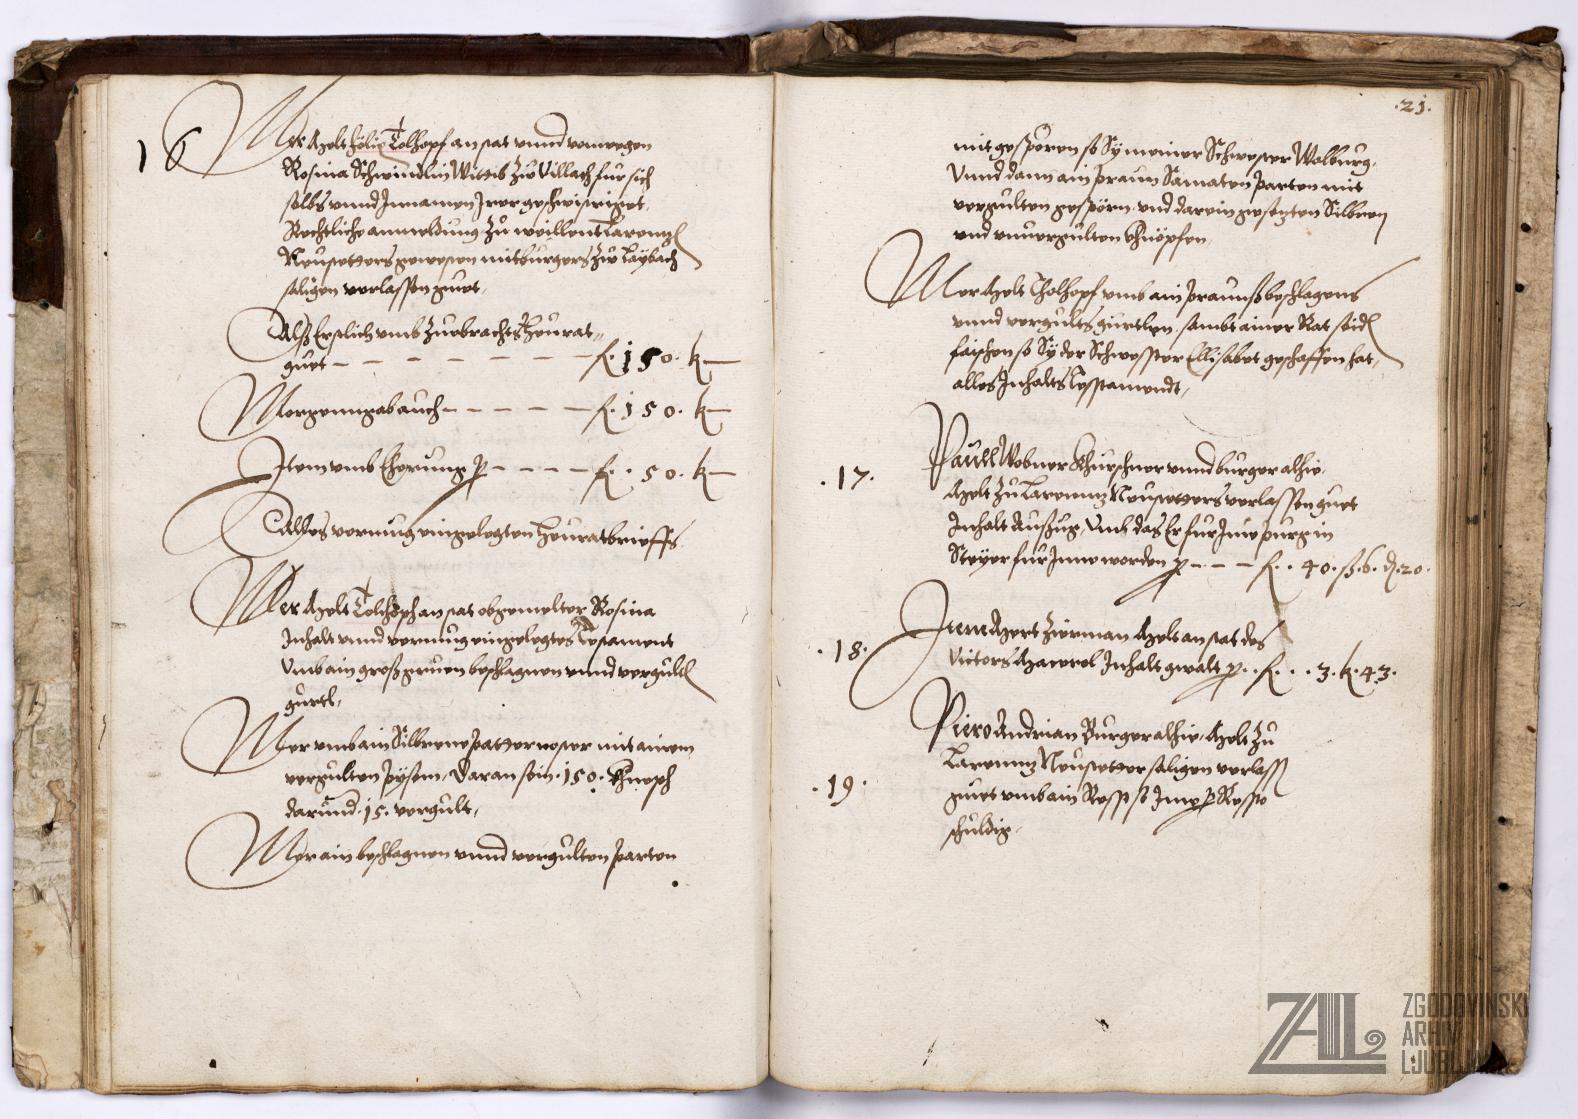 16
Mer Helt Felix Tolhopf an stat unnd von wegen
Rosina Schwindlin Wittib zw Villach fur sich
selbs unnd Innamen Irer geschwistriget
Rechtliche anmeldung zu weillent Larentz
Neustetters gewesen mitburgers zw Laybach
saligen verlassen guet,
Alß Erstlich umb zuebrachts Heurat=
guet – – – – – – – – f. 150. k –
Morgenngab auch – – – – – f. 150. k –
Item umb Eherung p – – – – f. . 50. k –
Alles vermug eingelegten Heuratbrieffs
Mer Helt Tolchoph an stat obgemelter Rosina
Inhalt unnd vermug eingelegtes Testament
Umb ain groß gruen beschlagnen unnd vergult
gurtl,
Mer umb ain Silbrene patternoster mit ainem
vergulten pysem, Daran sein .150. Khnoph
darund .15. vergult,
Mer ain beschlagnen unnd vergulten parten
.21.
mit gespören so Sy meiner Schwester Walburg,
Unnd dann ain praun Samaten parten mit
vergulten gespörn und darein gesetzten Silbren
und unvergulten Khnöpfen,
Mer Helt Tholhopf umb ain praunß beschlagens
unnd vergults gurtlen sambt ainer Rat seid
so Sy der Schwesster Ellisabet geschaffen hat,
alles Inhalts Testamendt,
.17.
Paull Wobner Khurschner unnd burger alhie,
Helt zu Larenntz Neustetters verlassen guet
Inhalt Außzug, Umb das Er fur Ine purg in
Steyer fur Inne worden p – – – f. . 40. ß. 6. d. 20.
.18.
Junn Hert Zierman Helt an stat des
Victors Inhalt gwalt p. . f. . . 3. k. 43.
Piero Andrian Burger alhie, Helt zu
Larenntz Neustetter saligen verlass
.19.
guet umb ain Rosß so Ime p Resto
schuldig.
ZAL
ZGODOVINSKI
ARHIV
LJUBLJANA